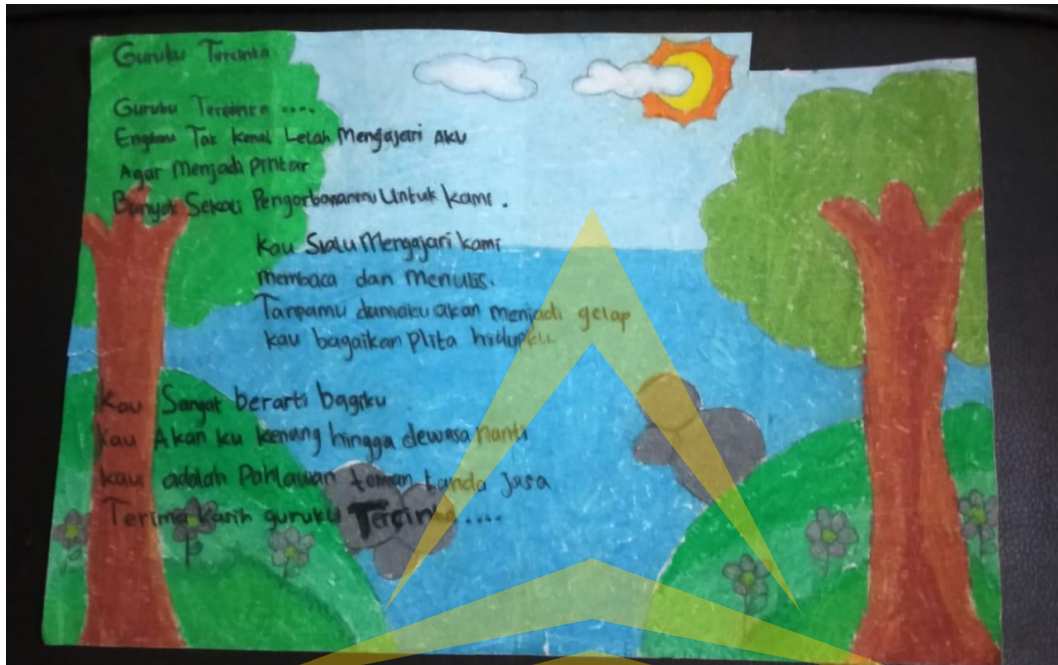 Guruku Tercinta
Guruku Tercinta ....
Engkau Tak Kenal Lelah Mengajari Aku
Agar Menjadi Pintar
Banyak Sekali Pengorbananmu Untuk kami.
Kau Slalu Mengajari kami
membaca dan Menulis.
Tanpamu duniaku akan menjadi gelap
kau bagaikan Plita hidupku.
Kau Sangat berarti bagiku
kau Akan ku kenang hingga dewasa nanti
kau adalah Pahlawan teman tanda Jasa
Terima karih guruku Tercinta....